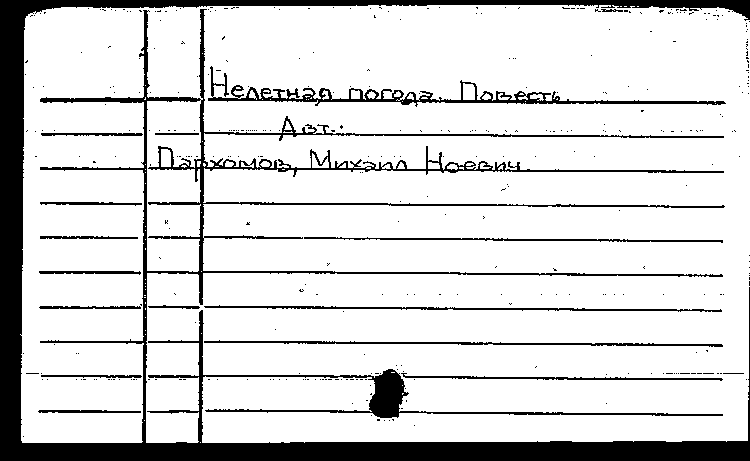 Нелетная погода. Повесть.
Авт.:
Пархомов, Михаил Ноевич.